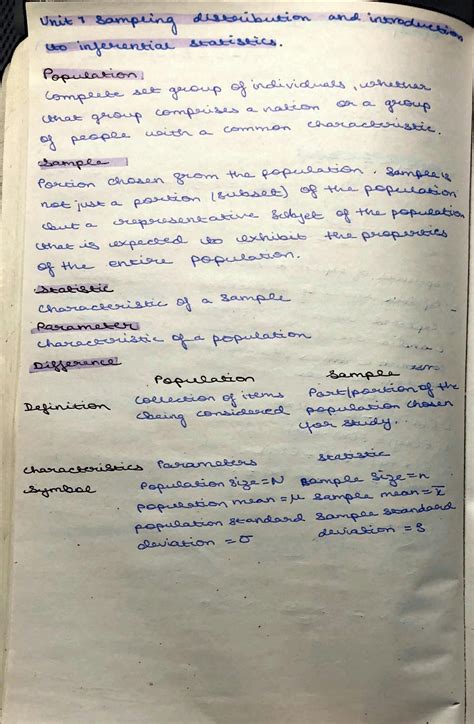 Unit 1 Sampling distribution and introduction
to inferential statistics.
Population
Complete set group of individuals, whether
that group comprises a nation or a group
of people with a common characteristic.
Sample
Portion chosen from the population. Sample is
not just a portion (subset) of the population
but a representative subset of the population
that is expected to exhibit the properties
of the entire population.
Statistic
Characteristic of a sample
Parameter
Characteristic of a population
Difference
Population Sample
Definition Collection of items Part/portion of the
being considered population chosen
for study.
Characteristics Parameters Statistic
Symbol Population size = N Sample size = n
population mean = μ Sample mean = x̅
population standard Sample standard
deviation = σ deviation = S